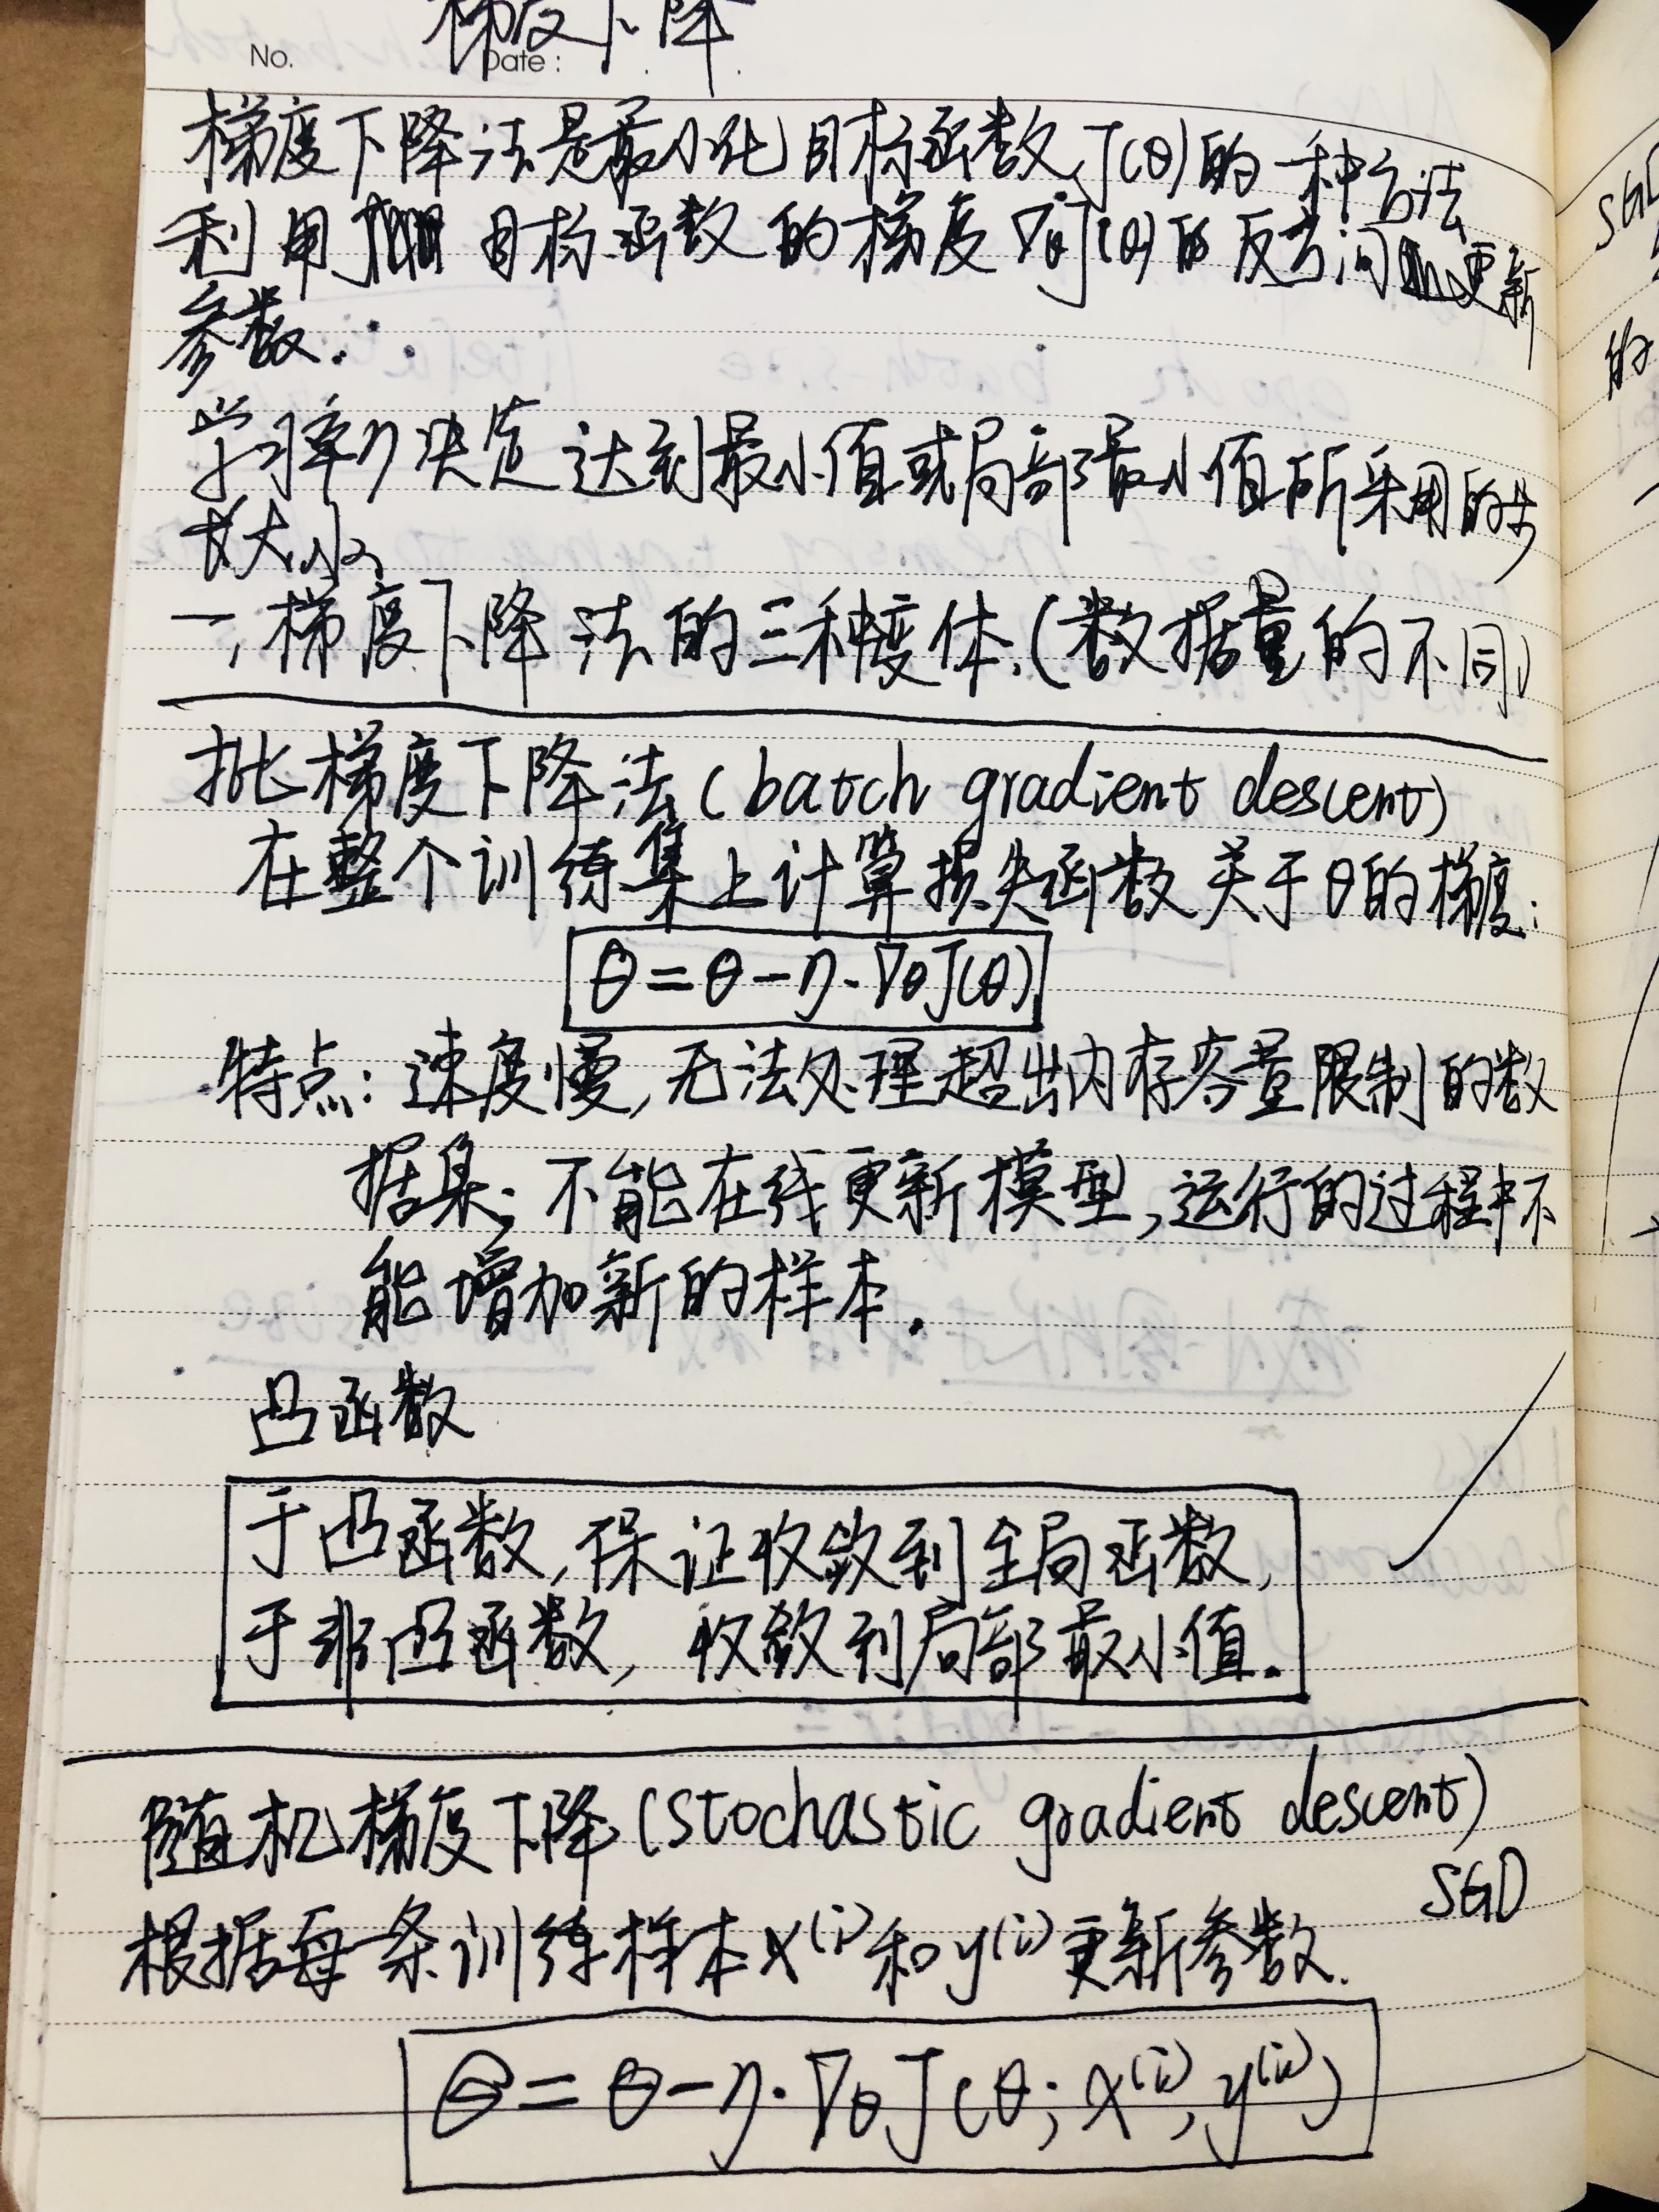 梯度下降
No.
Date:
梯度下降法是最小化目标函数J(θ)的一种方法
利用目标函数的梯度∇θJ(θ)的反方向更新
参数.
学习率η决定达到最小值或局部最小值所采用的步
长大小
一,梯度下降法的三种变体.(数据量的不同)
批梯度下降法(batch gradient descent)
在整个训练集上计算损失函数关于θ的梯度:
θ=θ-η·∇θJ(θ)
特点:速度慢,无法处理超出内存容量限制的数
据集;不能在线更新模型,运行的过程中不
能增加新的样本.
凸函数
于凸函数,保证收敛到全局函数,
于非凸函数, 收敛到局部最小值.
随机梯度下降(stochastic gradient descent)
SGD
根据每一条训练样本x^(i)和y^(i)更新参数.
θ=θ-η·∇θJ(θ;x^(i),y^(i))
SGD
的